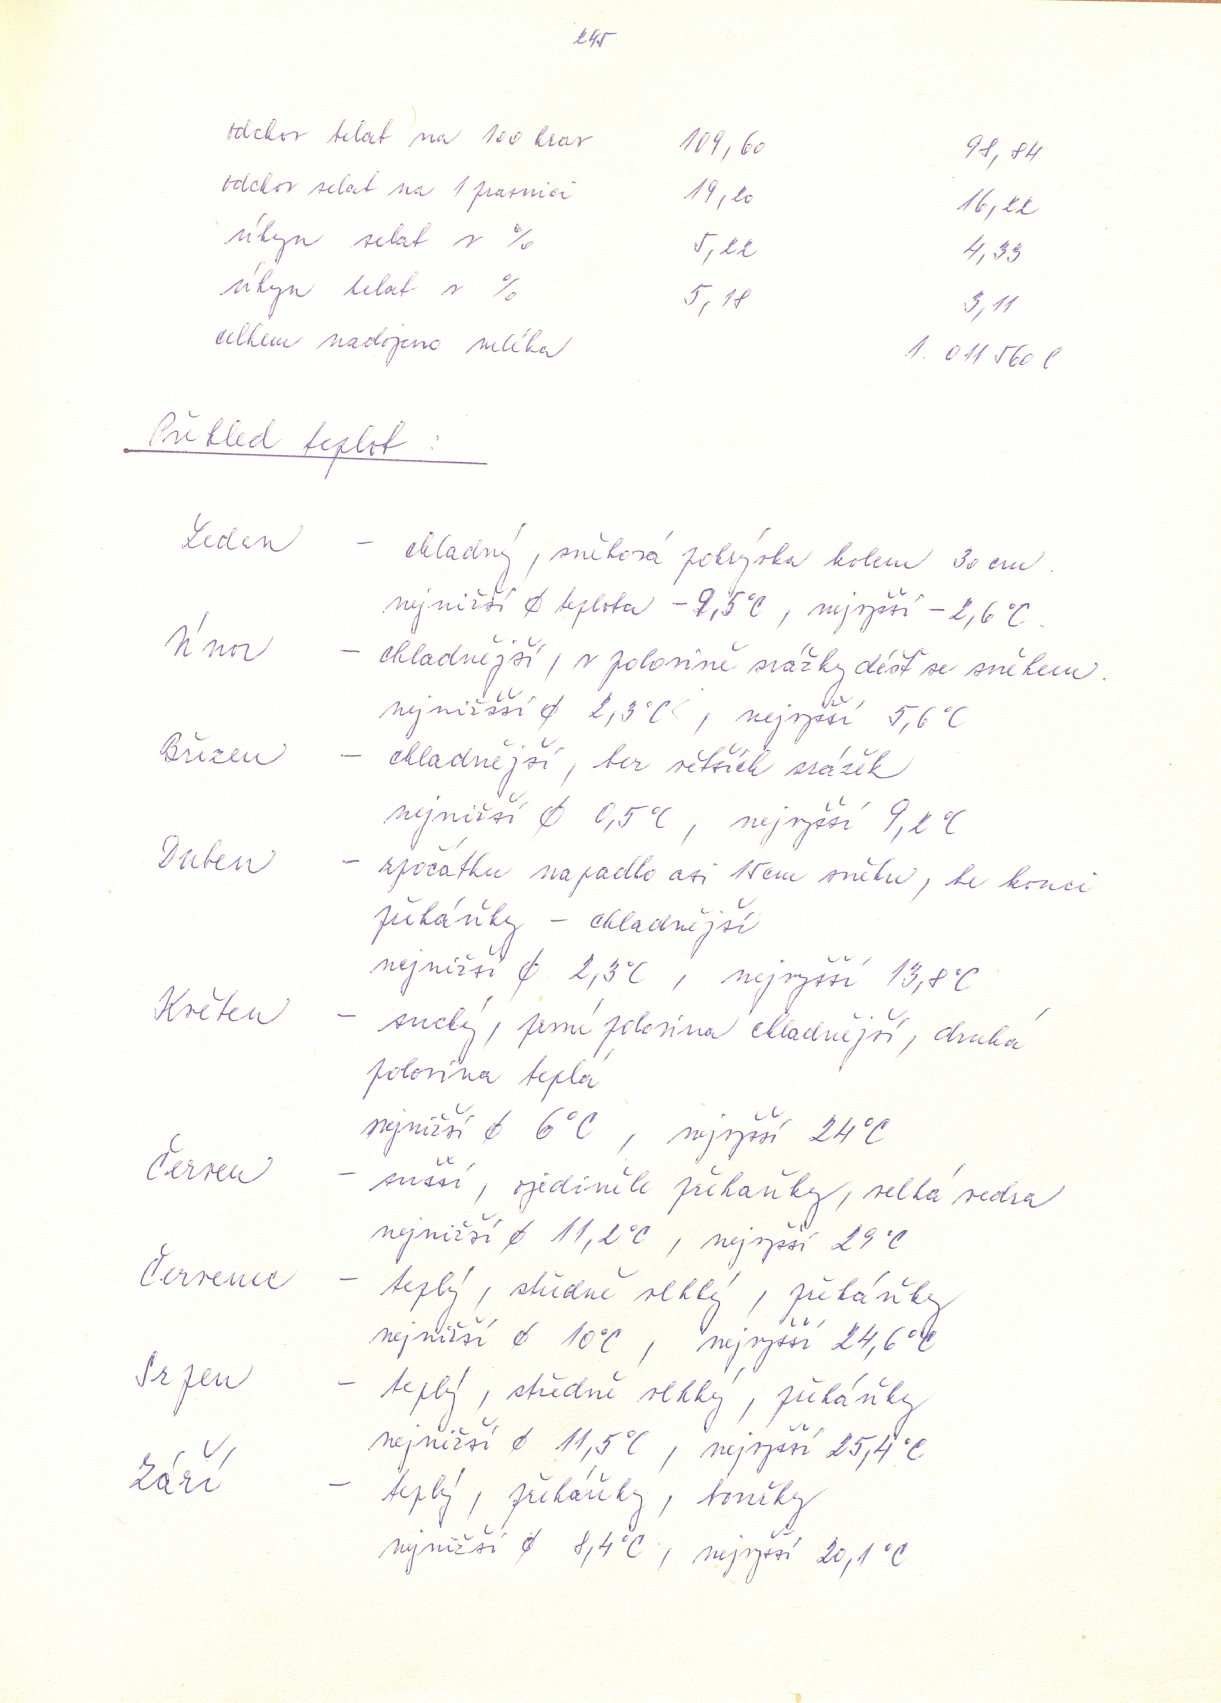 245
odchov telat na 100 krav 109,60 98,84
odchov selat na 1 prasnici 19,20 16,22
úhyn selat v % 5,22 4,33
úhyn telat v % 5,18 3,11
celkem nadojeno mléka 1. 011 560 l
Přehled teplot :
Leden – chladný, sněhová pokrývka kolem 30 cm.
nejnižší ∅ teplota -9,5°C, nejvyšší -2,6°C.
Únor – chladnější, v polovině srážky déšť se sněhem.
nejnižšší ∅ 2,3°C, nejvyšší 5,6°C
Březen – chladnější, bez větších srážek
nejnižší ∅ 0,5°C, nejvyšší 9,2°C
Duben – zpočátku napadlo asi 15cm sněhu, ke konci
přeháňky – chladnější
nejnižší ∅ 2,3°C, nejvyšší 13,8°C
Květen – suchý, první polovina chladnější, druhá
polovina teplá
nejnižší ∅ 6°C, nejvyšší 24°C
Červen – sušší, ojediněle přehaňky, velká vedra
nejnižší ∅ 11,2°C, nejvyšší 29°C
Červenec – teplý, středně vlhký, přeháňky
nejnižší ∅ 10°C, nejvyšší 24,6°C
Srpen – teplý, středně vlhký, přeháňky
nejnižší ∅ 11,5°C, nejvyšší 25,4°C
Září – teplý, přeháňky, bouřky
nejnižší ∅ 8,4°C, nejvyšší 20,1°C